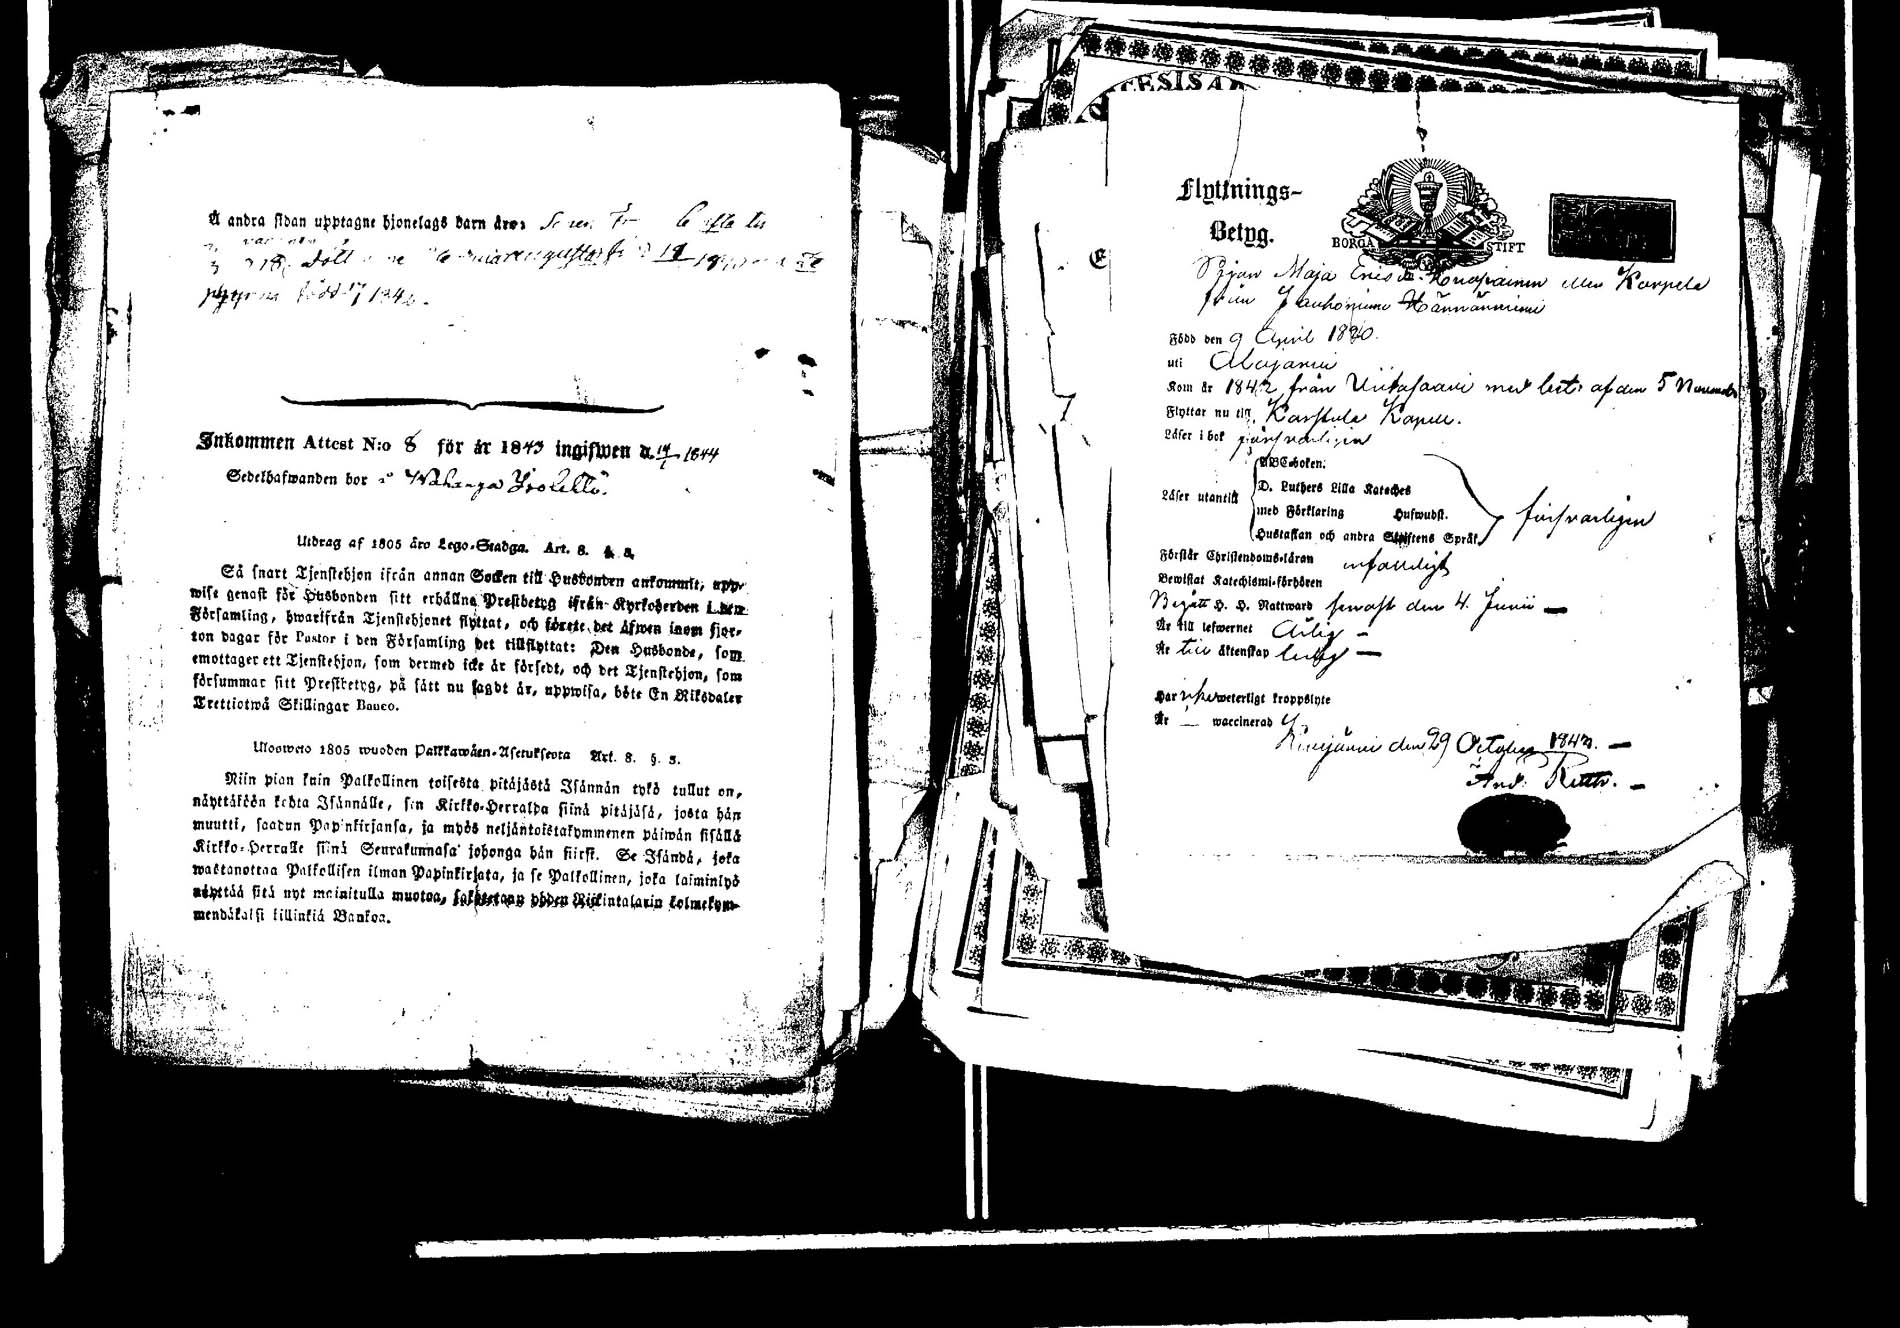 Å andra sidan upptagne hjonelags barn äro:
född 17/1 1842.
Inkommen Attest N:o 8 för år 1843 ingifwen d. 14/1 1844
Sedelhafwanden bor
Utdrag af 1805 åro Lego-Stadga. Art. 8. §. 3.
Så snart Tjenstehjon ifrån annan Socken till Husbonden ankommit, upp-
wise genast för Husbonden sitt erhållne Prestbetyg ifrån Kyrkoherden i den
Församling, hwarifrån Tjenstehjonet flyttat, och förete det äfwen inom fjor-
ton dagar för Pastor i den Församling det tillflyttat: Den Husbonde, som
emottager ett Tjenstehjon, som dermed icke är försedt, och det Tjenstehjon, som
försummar sitt Prestbetyg, på sätt nu sagdt är, uppwisa, böte En Riksdaler
Trettiotwå Skillingar Banco.
Ulosweto 1805 wuoden Palkkawäen-Asetuksesta Art. 8. §. 3.
Niin pian kuin Palkollinen toisesta pitäjästä Isännän tykö tullut on,
näyttäköön kohta Isännälle, sen Kirkko-Herralda siinä pitäjäsä, josta hän
muutti, saadun Papinkirjansa, ja myös neljäntoistakymmenen päiwän sisällä
Kirkko-Herralle siinä Seurakunnasa johonga hän siirst. Se Isändä, joka
wastanottaa Palkollisen ilman Papinkirjata, ja se Palkollinen, joka laiminlyö
näyttää sitä nyt mainitulla muotoa, sakotetaan yhden Riikintalarin kolmekym-
mendäkaksi killinkiä Bankoa.
Flyttnings-
Betyg.
BORGÅ STIFT
Pigan Maja Ericsdr. eller Karpela
från
Född den 9 April 1820.
uti Alajärwi
Kom år 1842 från Wiitasaari med bet. af den 5 November
Flyttar nu till Karstula Kapell.
Läser i bok försvarligen
Läser utantill
ABC-boken.
D. Luthers Lilla Kateches
med Förklaring Hufwudst.
Hustaflan och andra Skriftens Språk
försvarligen
Förstår Christendoms-läran enfaldigt
Bewistat Katechismi-förhören
Begått H. H. Nattward senast den 4 Junii —
Är till lefwernet Ärlig —
Är till äktenskap ledig —
Har icke weterligt kroppslyte
Är — waccinerad
Kiwijärwi den 29 October 1843. —
And. —